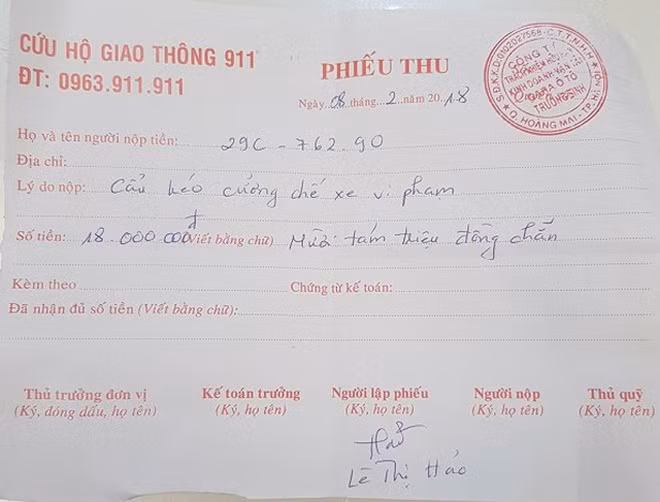 CỨU HỘ GIAO THÔNG 911
ĐT: 0963.911.911
PHIẾU THU
Ngày 08 tháng 2 năm 2018
S.Đ.K.K.D:0102027568-C.T.T.N.H.H
CÔNG TY
TRÁCH NHIỆM HỮU HẠN
KINH DOANH VẬN TẢI
GARA Ô TÔ
TRƯỜNG SINH
Q. HOÀNG MAI - TP. HÀ NỘI
Họ và tên người nộp tiền: 29C - 762.90
Địa chỉ:
Lý do nộp: Cẩu kéo cưỡng chế xe vi phạm
Số tiền: 18.000.000đ (Viết bằng chữ) Mười tám triệu đồng chẵn
Kèm theo Chứng từ kế toán:
Đã nhận đủ số tiền (Viết bằng chữ):
Thủ trưởng đơn vị Kế toán trưởng Người lập phiếu Người nộp Thủ quỹ
(Ký, đóng dấu, họ tên) (Ký, họ tên) (Ký, họ tên) (Ký, họ tên) (Ký, họ tên)
Lê Thị Hảo